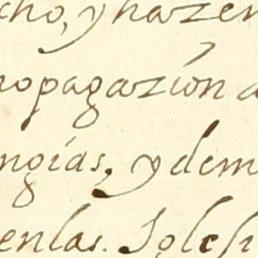 cho, y hazen
ropagazión a
ngías, y dem
enlas. Igles